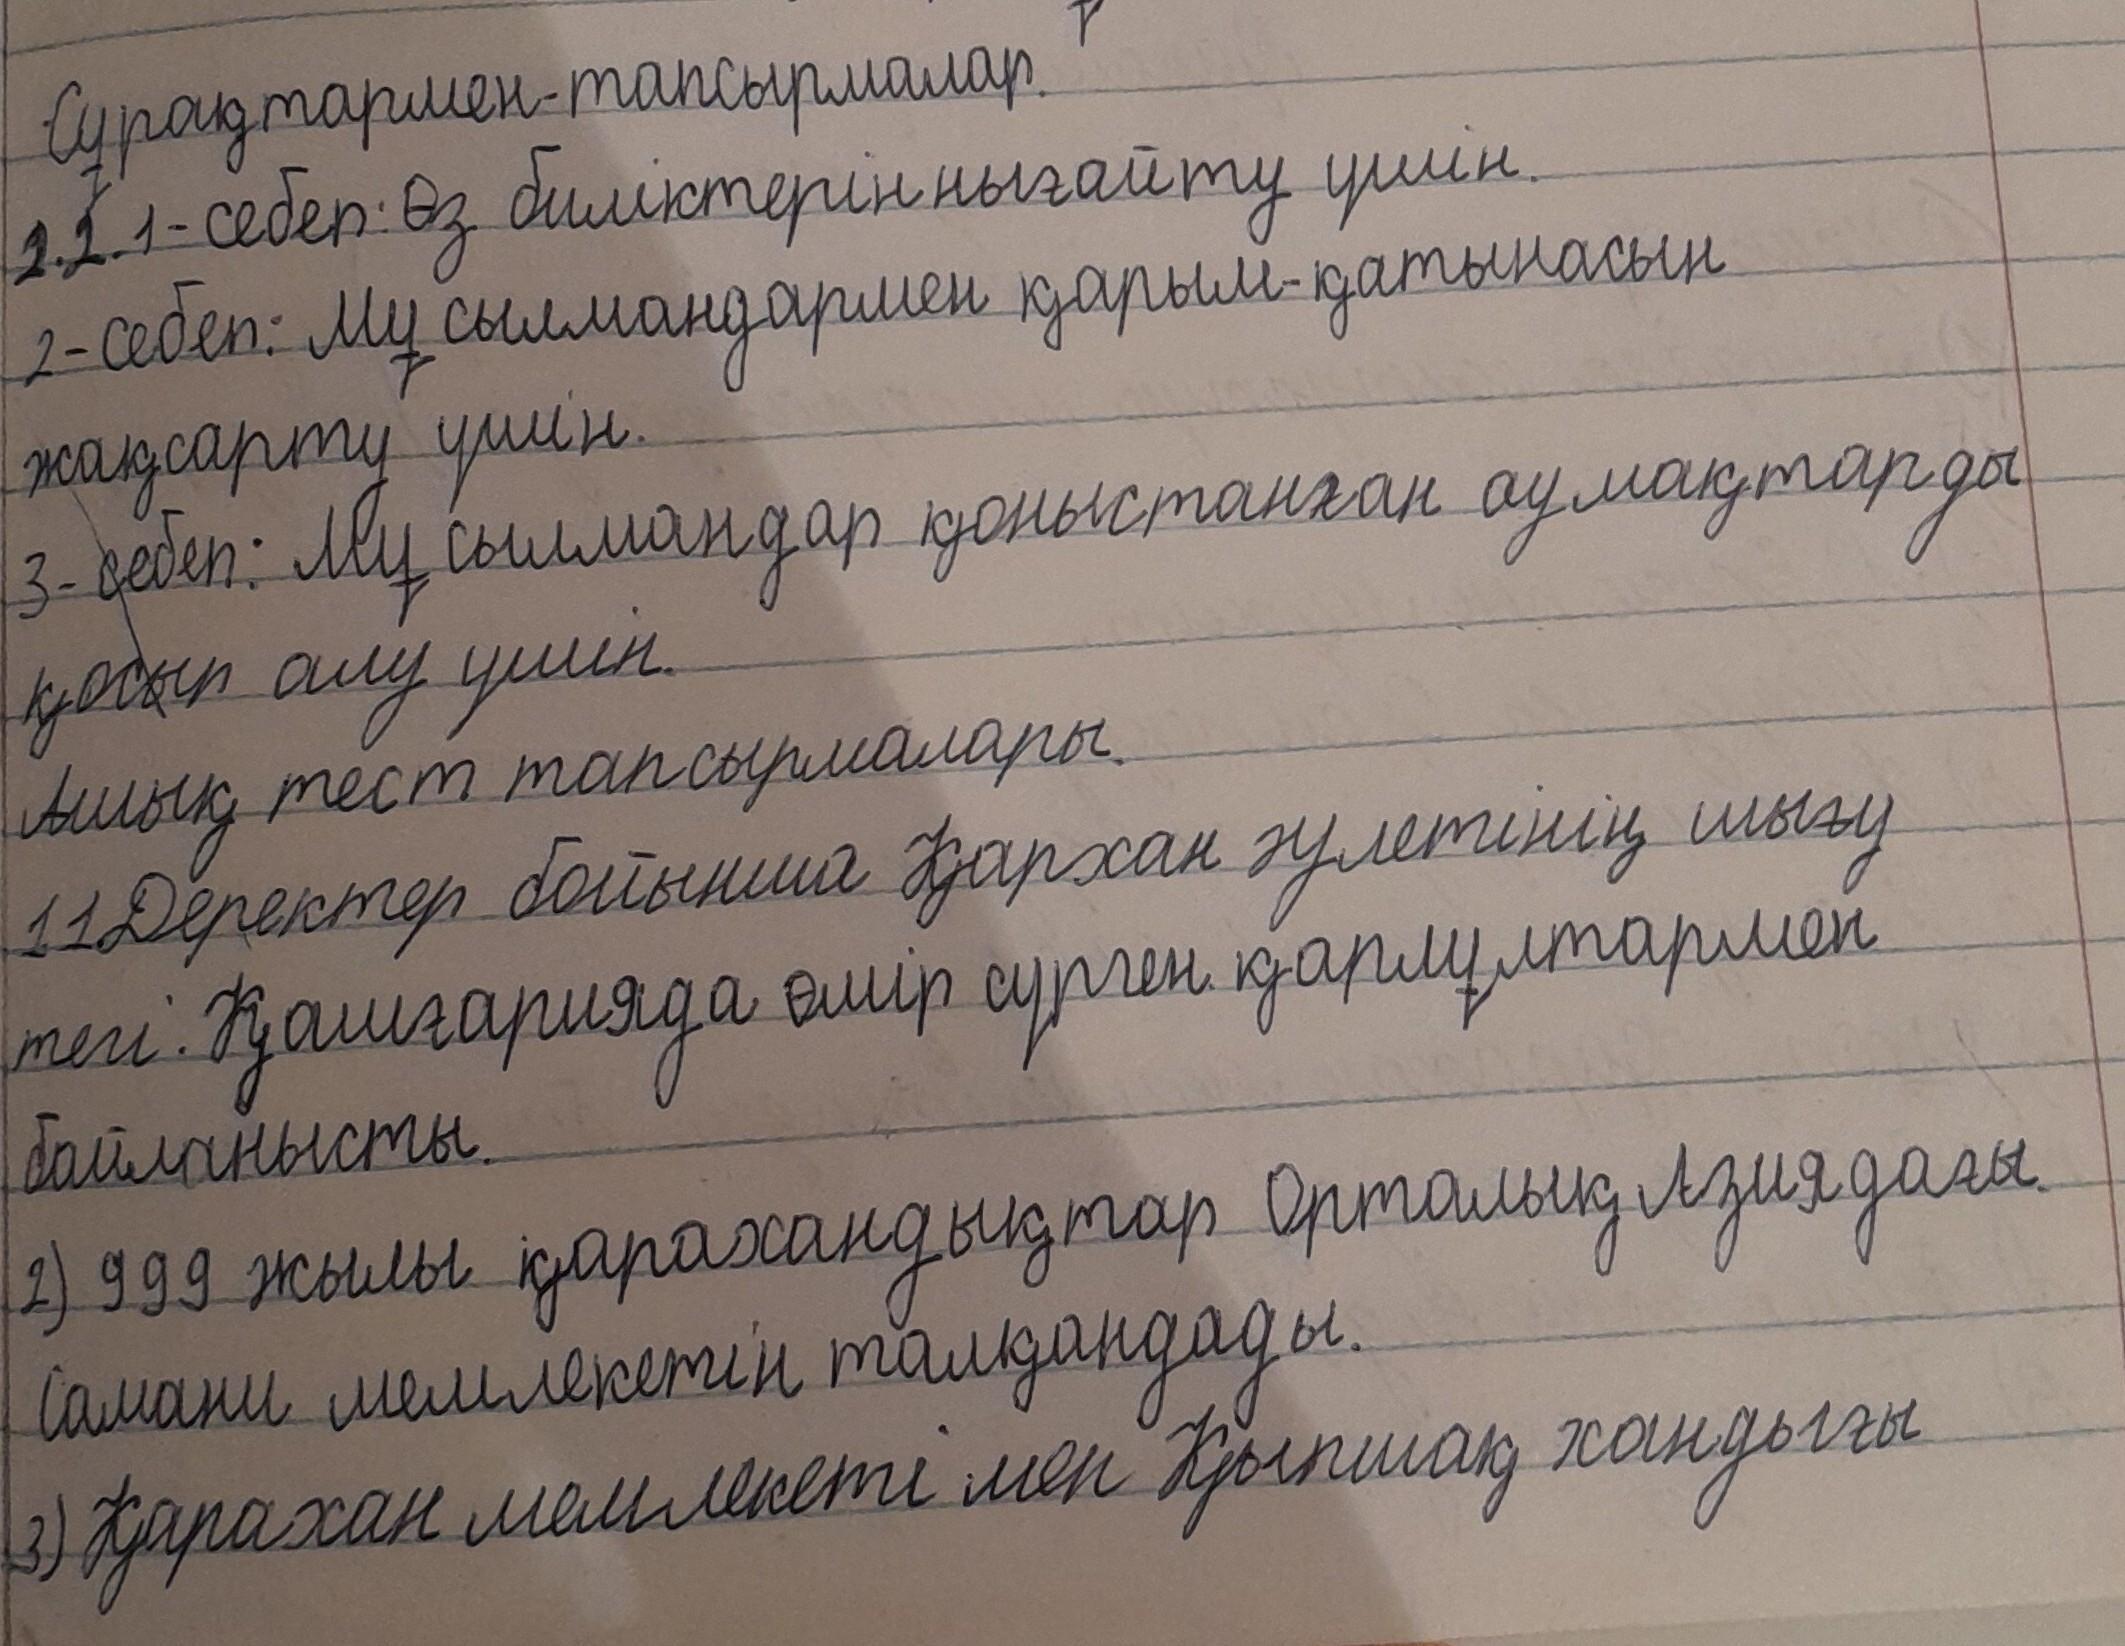 Сұрақтармен-тапсырмалар.
2.2. 1-себеп: Өз биліктерін нығайту үшін.
2-себеп: Мұсылмандармен қарым-қатынасын
жақсарту үшін.
3-себеп: Мұсылмандар қоныстанған аумақтарды
қосып алу үшін.
Ашық тест тапсырмалары.
11Деректер бойынша Қархан әулетінің шығу
тегі: Қашғарияда өмір сүрген қарлұлтармен
байланысты.
2) 999 жылы қарахандықтар Орталық Азиядағы
Самани мемлекетін талқандады.
3) Қарахан мемлекеті мен Қыпшақ хандығы